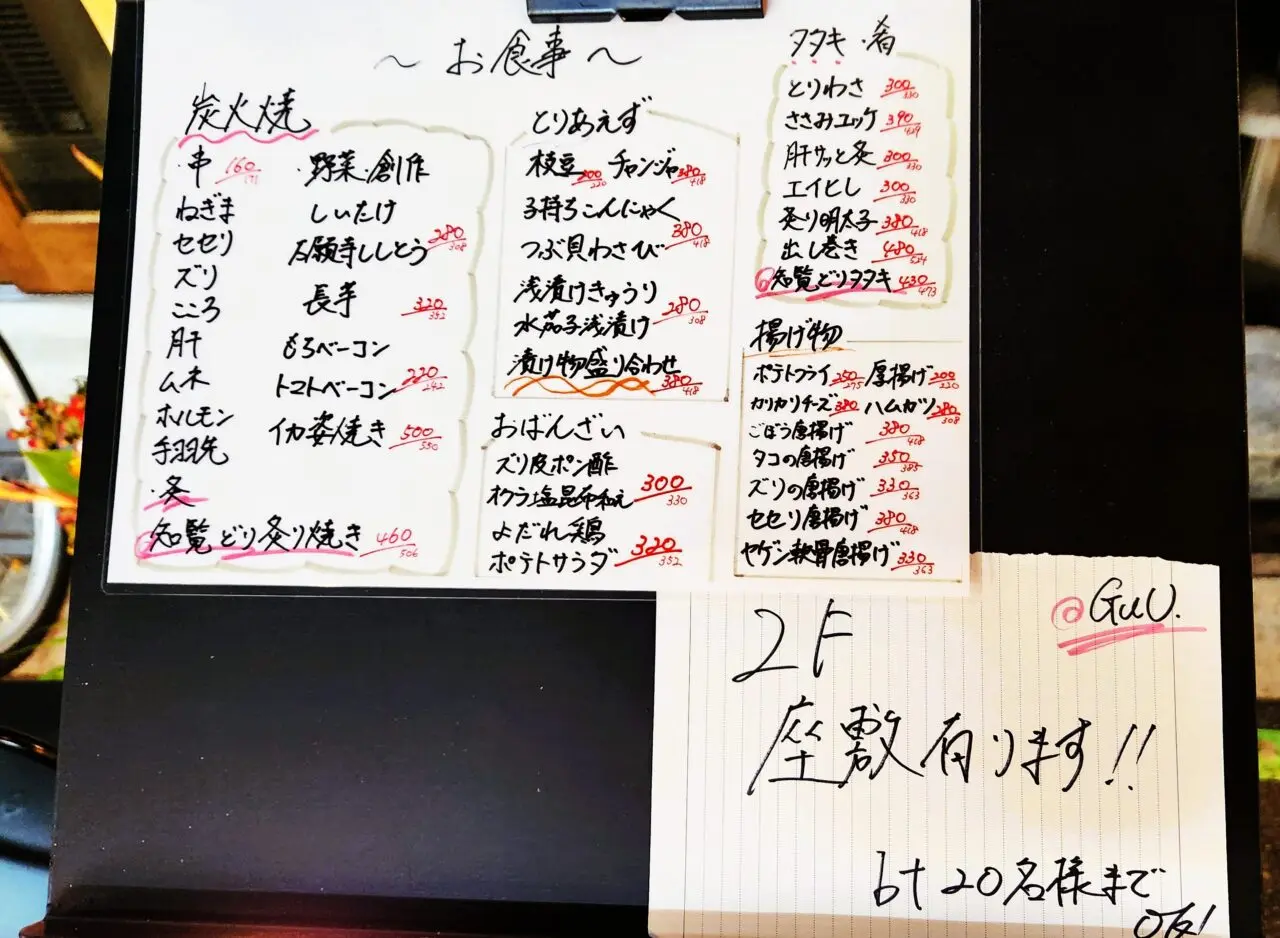 ～お食事～
炭火焼
・串 160 171
ねぎま
セセリ
ズリ
こころ
肝
ムネ
ホルモン
手羽先
・炙
知覧どり炙り焼き 460 506
・野菜・創作
しいたけ
万願寺ししとう 280 308
長芋 320 352
もちベーコン
トマトベーコン 220 242
イカ姿焼き 500 550
とりあえず
枝豆 200 220 チャンジャ 380 418
子持ちこんにゃく
つぶ貝わさび 380 418
浅漬けきゅうり
水茄子浅漬け 280 308
漬け物盛り合わせ 380 418
おばんざい
ズリ皮ポン酢
オクラ塩昆布和え 300 330
よだれ鶏
ポテトサラダ 320 352
タタキ・肴
とりわさ 300 330
ささみユッケ 390 429
肝サッと炙 300 330
エイヒレ 300 330
炙り明太子 380 418
出し巻き 480 524
知覧どりタタキ 430 473
揚げ物
ポテトフライ 250 275 厚揚げ 200 220
カリカリチーズ 380 ハムカツ 280 308
ごぼう唐揚げ 380 418
タコの唐揚げ 350 385
ズリの唐揚げ 330 363
セセリ唐揚げ 380 418
ヤゲン軟骨唐揚げ 330 363
@GuU.
2F
座敷有ります!!
6†20名様まで
OK!